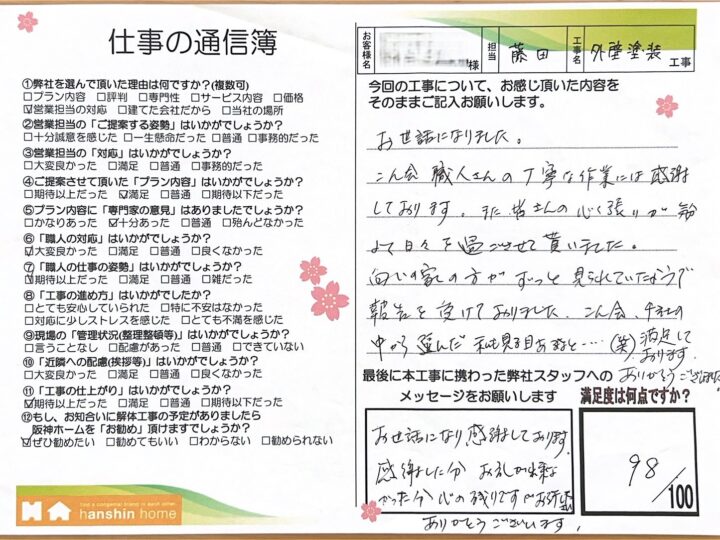 仕事の通信簿
①弊社を選んで頂いた理由は何ですか?(複数可)
□プラン内容 □評判 □専門性 □サービス内容 □価格
☑営業担当の対応 □建てた会社だから □当社の場所
②営業担当の「ご提案する姿勢」はいかがでしょうか?
□十分誠意を感じた □一生懸命だった □普通 □事務的だった
③営業担当の「対応」はいかがでしょうか?
□大変良かった □満足 □普通 □事務的だった
④ご提案させて頂いた「プラン内容」はいかがでしょうか?
□期待以上だった ☑満足 □普通 □期待以下だった
⑤プラン内容に「専門家の意見」はありましたでしょうか?
□かなりあった ☑十分あった □普通 □殆んどなかった
⑥「職人の対応」はいかがでしょうか?
☑大変良かった □満足 □普通 □良くなかった
⑦「職人の仕事の姿勢」はいかがでしょうか?
☑期待以上だった □満足 □普通 □雑だった
⑧「工事の進め方」はいかがでしたか?
□とても安心していられた □特に不安はなかった
□対応に少しストレスを感じた □とても不満を感じた
⑨現場の「管理状況(整理整頓等)」はいかがでしょうか?
□言うことなし □配慮があった □普通 □できていない
⑩「近隣への配慮(挨拶等)」はいかがでしょうか?
□大変良かった □満足 □普通 □良くなかった
⑪「工事の仕上がり」はいかがでしょうか?
☑期待以上だった □満足 □普通 □期待以下だった
⑫もし、お知合いに解体工事の予定がありましたら
阪神ホームを「お勧め」頂けますでしょうか?
☑ぜひ勧めたい □勧めてもいい □わからない □勧められない
find a congenial brand in each other.
hanshin home
お客様名 様 担当 藤田 工事名 外壁塗装 工事
今回の工事について、お感じ頂いた内容を
そのままご記入お願いします。
お世話になりました。
こん会 職人さんの丁寧な作業には感謝
しております。また皆さんの心く張りが
日々を過ごさせて貰いました。
向いの家の方がずっと見られていたようで
報告を受けておりました。こん会、
中から選んだ私も見る目あると…(笑) 満足して
おります。
ありがとうございました
最後に本工事に携わった弊社スタッフへの
メッセージをお願いします
お世話になり感謝しております。
感謝した分 お礼が出来な
かった分 心の残りですが
ありがとうございます。
満足度は何点ですか?
98/100